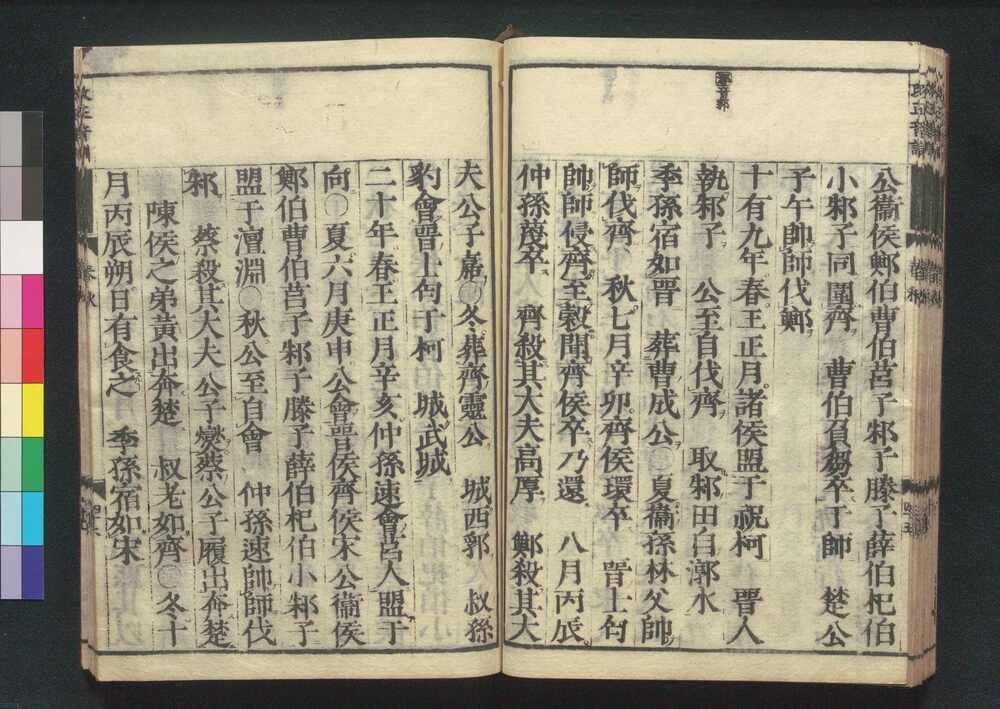 公衞侯鄭伯曹伯莒子邾子滕子薛伯杞伯
小邾子同圍齊　曹伯負芻卒于師　楚公
子午帥師伐鄭
十有九年春王正月諸侯盟于祝柯　晋人
執邾子　公至自伐齊　取邾田自漷水
季孫宿如晋　葬曹成公〇夏衞孫林父帥
師伐齊　秋七月辛卯齊侯環卒　晋士匄
帥師侵齊至穀聞齊侯卒乃還　八月丙辰
仲孫蔑卒　齊殺其大夫高厚　鄭殺其大
夫公子嘉〇冬葬齊靈公　城西郛　叔孫
豹會晋士匄于柯　城武城
二十年春王正月辛亥仲孫速會莒人盟于
向〇夏六月庚申公會晋侯齊侯宋公衞侯
鄭伯曹伯莒子邾子滕子薛伯杞伯小邾子
盟于澶淵〇秋公至自會　仲孫速帥師伐
邾　蔡殺其大夫公子燮蔡公子履出奔楚
陳侯之弟黃出奔楚　叔老如齊〇冬十
月丙辰朔日有食之　季孫宿如宋
春秋